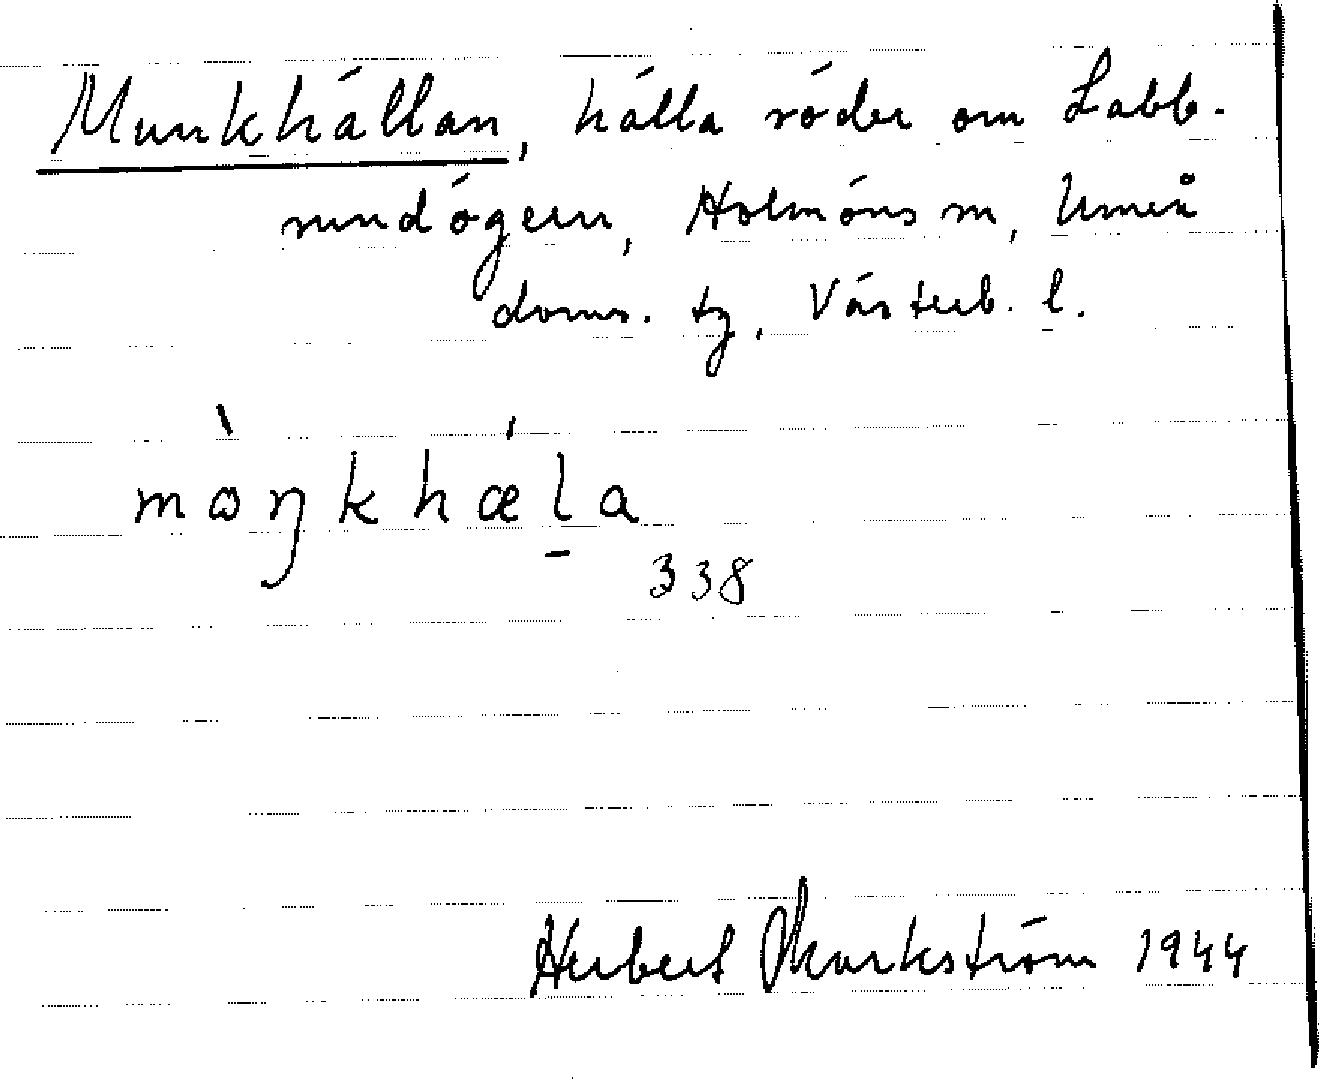 Munkhällan, hälla söder om Labb-
sundögern, Holmöns sn, Umeå
doms. tg, Västerb. l.
mòŋkhæla
338
Herbert Markström 1944